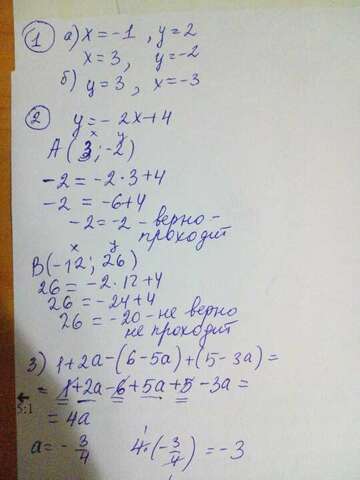 1 а) x = -1, y = 2
x = 3, y = -2
б) y = 3, x = -3
2 y = -2x+4
x y
A (3; -2)
-2 = -2·3+4
-2 = -6+4
-2 = -2 - верно -
проходит
x y
B(-12; 26)
26 = -2·12+4
26 = -24+4
26 = -20 - не верно
не проходит
3) 1+2a-(6-5a)+(5-3a) =
= 1+2a-6+5a+5-3a =
5:1
= 4a
a = -3/4 4·(-3/4) = -3